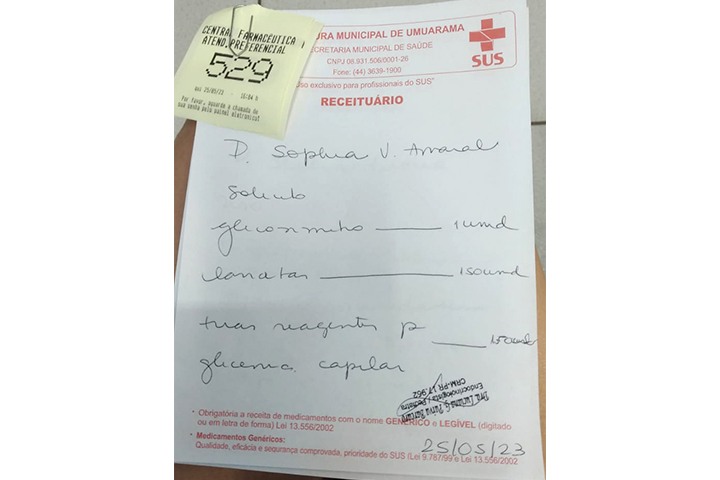 CENTRAL FARMACÊUTICA
ATEND.PREFERENCIAL
529
qui 25/05/23 16:04 h
Por favor, aguarde a chamada de
sua senha pelo painel eletronico!
URA MUNICIPAL DE UMUARAMA
SECRETARIA MUNICIPAL DE SAÚDE
CNPJ 08.931.506/0001-26
Fone: (44) 3639-1900
SUS
so exclusivo para profissionais do SUS"
RECEITUÁRIO
D. Sophia V. Amaral
Solicito
glicosimetro 1 und
lancetas 150 und
tiras reagentes p 150 und
glicemia capilar
Dra. Luciana
Endocrinologista Pediatra
CRM-PR 17.962
* Obrigatória a receita de medicamentos com o nome GENÉRICO e LEGÍVEL (digitado
ou em letra de forma) Lei 13.556/2002
* Medicamentos Genéricos:
Qualidade, eficácia e segurança comprovada, prioridade do SUS (Lei 9.787/99 e Lei 13.556/2002
25/05/23